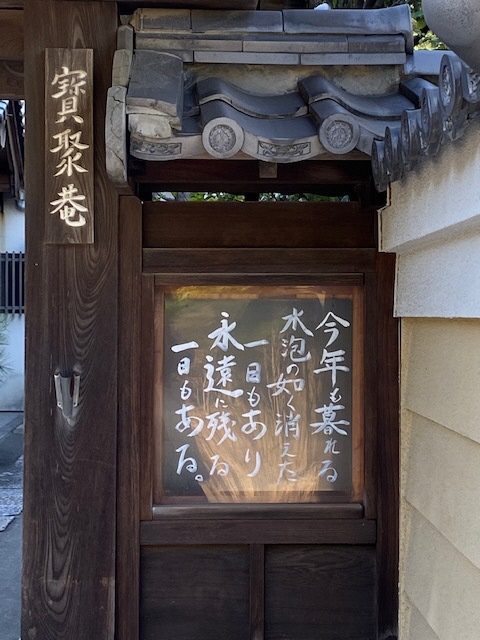 寶聚菴
今年も暮れる
水泡の如く消えた
一日もあり
永遠に残る
一日もある。